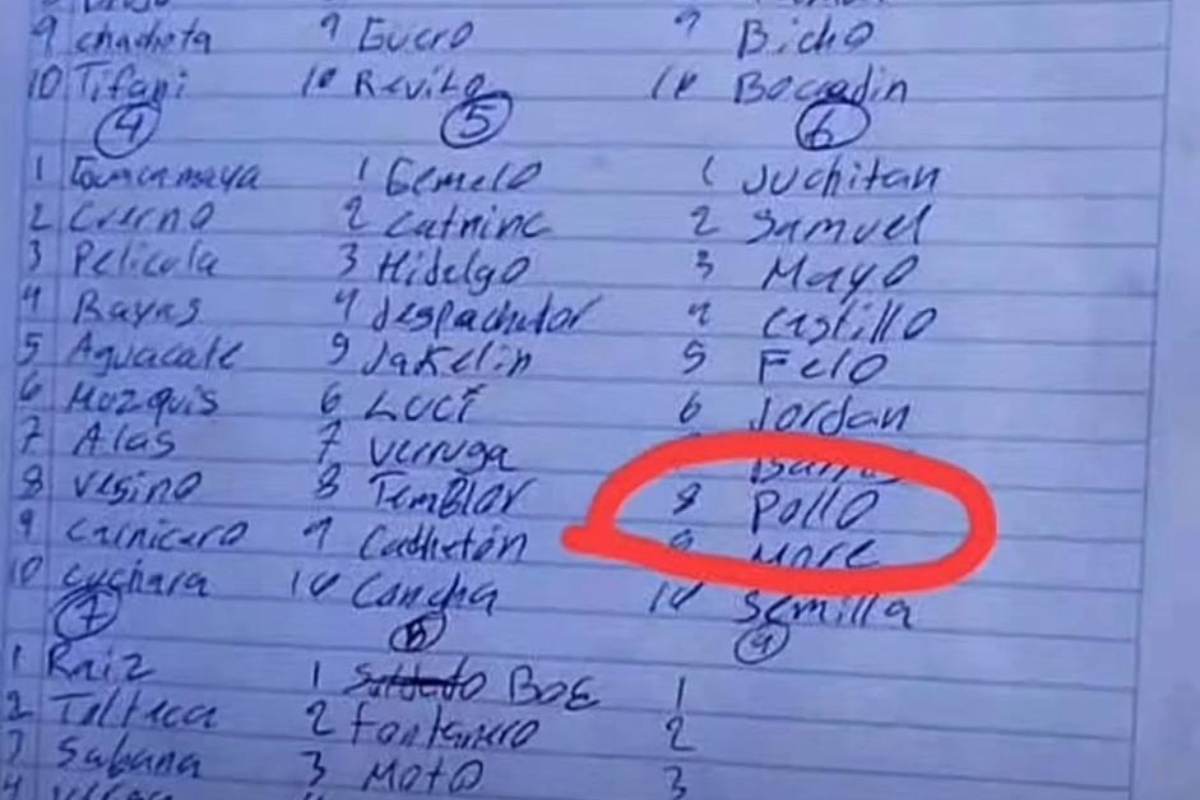 9 chacheta 9 Guero 9 Bicho
10 Tifani 10 Revito 10 Bocadin
4 5 6
1 Guacamaya 1 Gemelo 1 Juchitan
2 Cuerno 2 Catrinc 2 Samuel
3 Pelicula 3 Hidalgo 3 Mayo
4 Rayas 4 despachador 4 Castillo
5 Aguacate 5 Jakelin 5 Felo
6 Mozquis 6 Luci 6 Jordan
7 Alas 7 Verruga
8 Vesino 8 Temblor 8 Pollo
9 Carnicero 9 Cachetón 9 More
10 cuchara 10 Cancha 10 Semilla
7 8 9
1 Raiz 1 BOE 1
2 Tolteca 2 Fontanero 2
3 Sabana 3 Moto 3
4